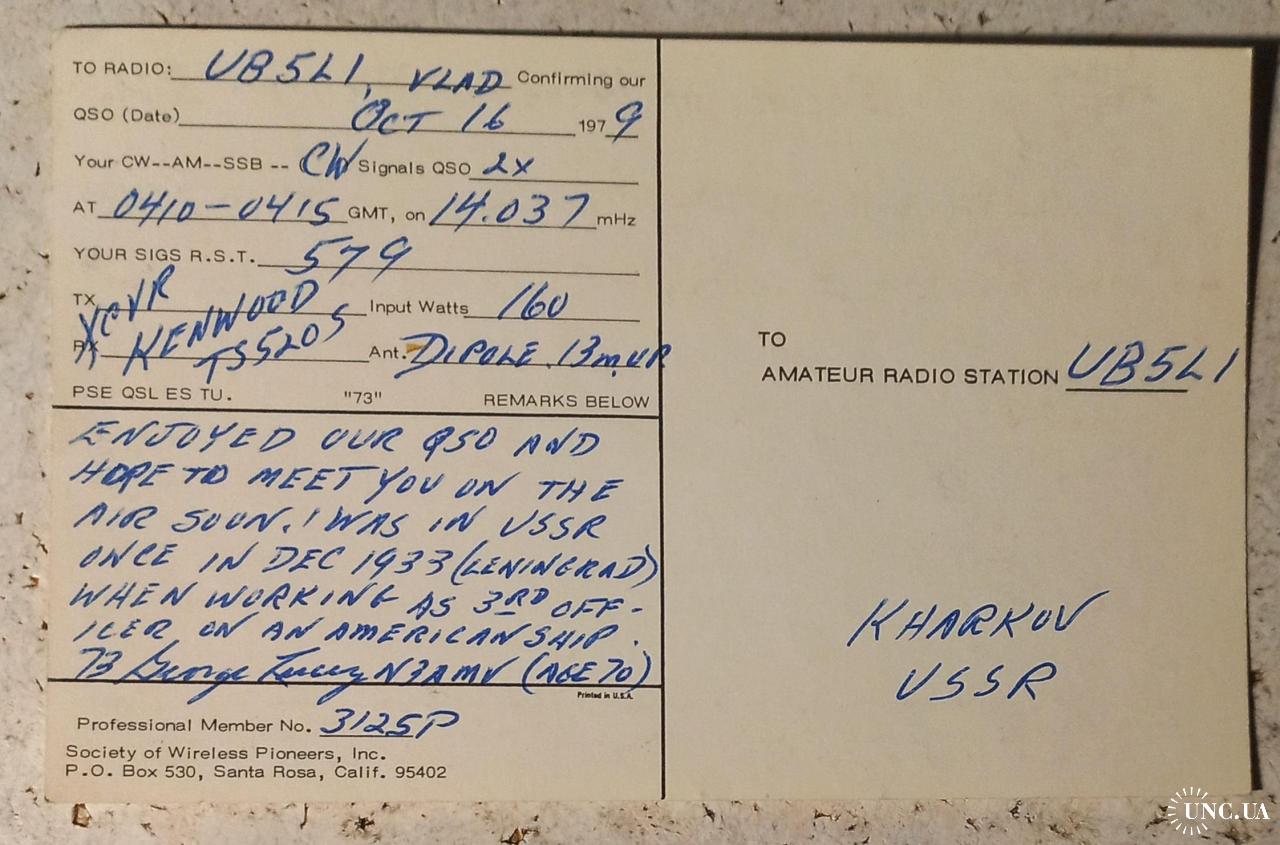 TO RADIO: UB5LI, VLAD Confirming our
QSO (Date) OCT 16 1979
Your CW--AM--SSB -- CW Signals QSO 2X
AT 0410-0415 GMT, on 14.037 mHz
YOUR SIGS R.S.T. 579
TX XCVR Input Watts 160
KENWOOD
TS520S Ant. DIPOLE 13m. UP
PSE QSL ES TU. "73" REMARKS BELOW
ENJOYED OUR QSO AND
HOPE TO MEET YOU ON THE
AIR SOON. I WAS IN USSR
ONCE IN DEC 1933 (LENINGRAD)
WHEN WORKING AS 3RD OFF-
ICER ON AN AMERICAN SHIP.
73 George N3AMV (AGE 70)
Printed in U.S.A.
Professional Member No. 3125P
Society of Wireless Pioneers, Inc.
P.O. Box 530, Santa Rosa, Calif. 95402
TO
AMATEUR RADIO STATION UB5LI
KHARKOV
USSR
UNC.UA